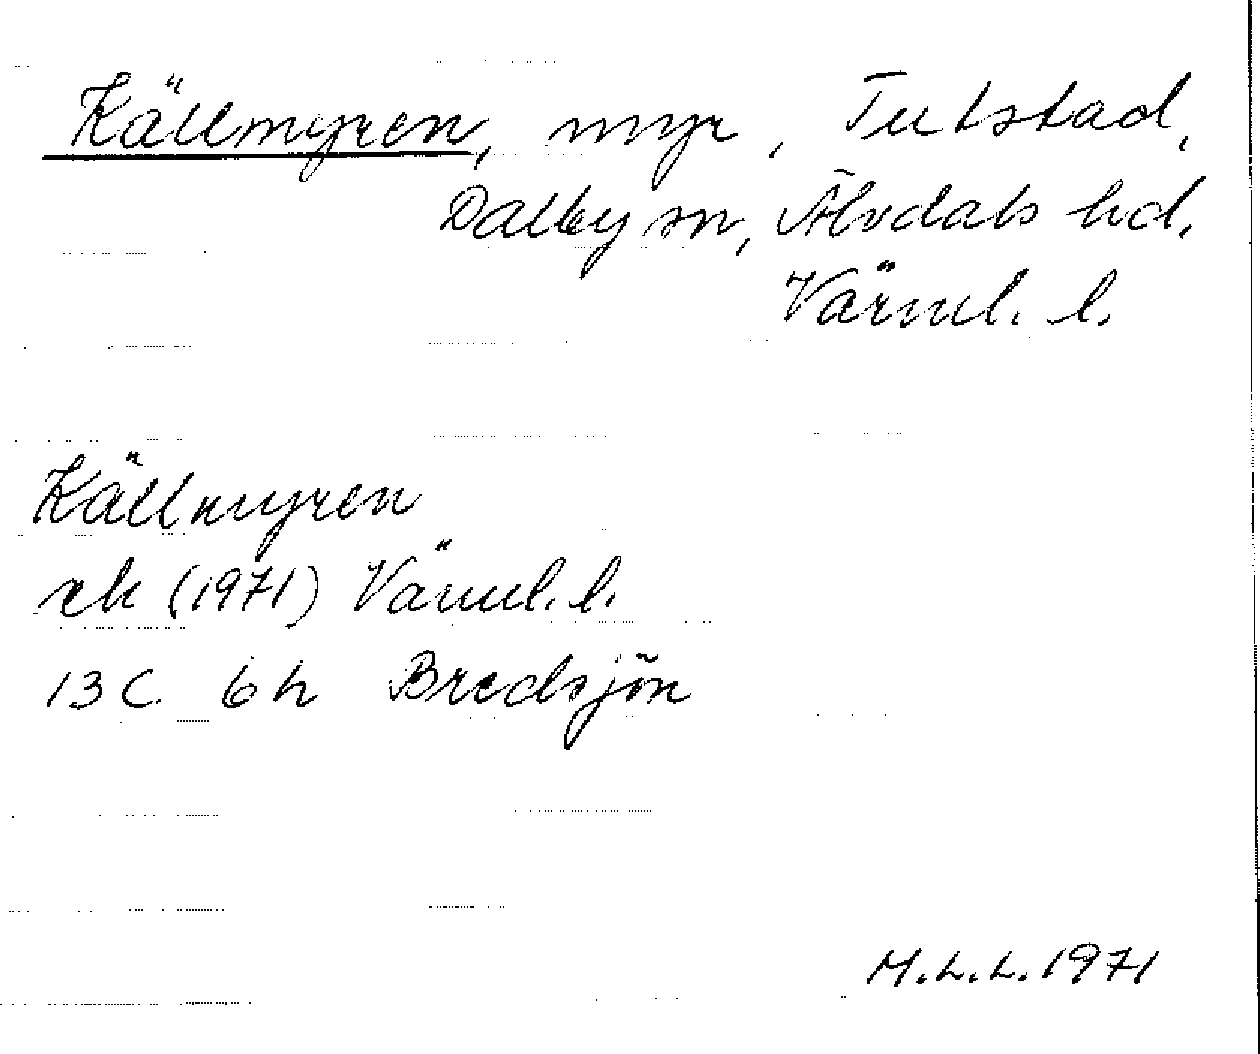 Källmyren, myr, Tutstad,
Dalby sn, Älvdals hd,
Värml. l.
Källmyren
rek (1971) Värml. l.
13C 6h Bredsjön
M.L.L. 1971